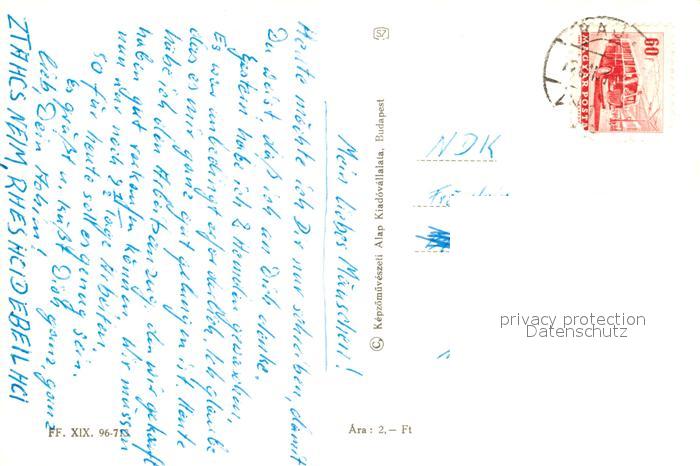 Mein liebes Mäuschen!
Heute möchte ich Dir nur schreiben, damit
Du weist, daß ich an Dich denke.
Gestern habe ich 2 Hemden gewaschen.
Es war unbedingt erforderlich. Ich glaube
das es mir ganz gut gelungen ist. Hätte
hätte ich den Arbeitsanzug, den wir gekauft
haben gut verkaufen können. Wir müssen
nun nur noch 3 Tage Arbeiten.
So für heute soll es genug sein.
Es grüßt u. küßt Dich ganz, ganz
lieb, Dein Holm!
ZTAHCS NEIM, RHES HCID EBEIL HCI
NDK
60f
MAGYAR POSTA
© Képzőművészeti Alap Kiadóvállalata, Budapest
FF. XIX. 96-713
Ára: 2,— Ft
privacy protection
Datenschutz